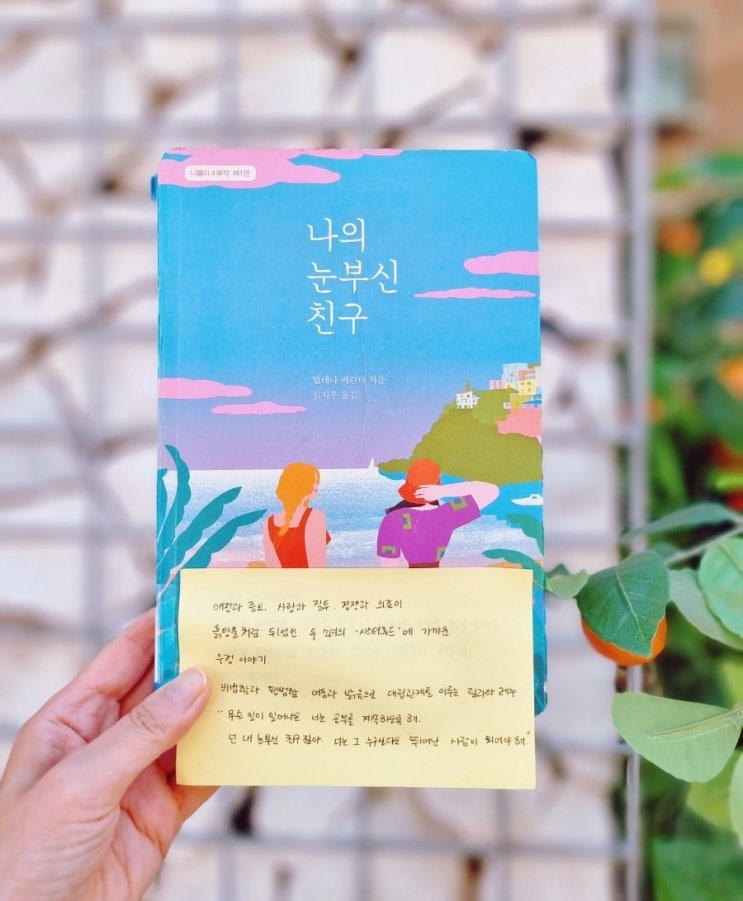 나폴리 4부작 제1권
나의
눈부신
친구
엘레나 페란테 지음
김지우 옮김
애정과 증오, 사랑과 질투, 경쟁과 의존이
흙탕물처럼 뒤섞인 두 소녀의 '시스터후드'에 가까운
우정 이야기.
비범함과 평범함, 어둠과 밝음으로 대립관계를 이루는 릴라와 레누
"무슨 일이 일어나도 너는 공부를 계속하도록 해.
넌 내 눈부신 친구잖아. 너는 그 누구보다도 뛰어난 사람이 되어야 해."